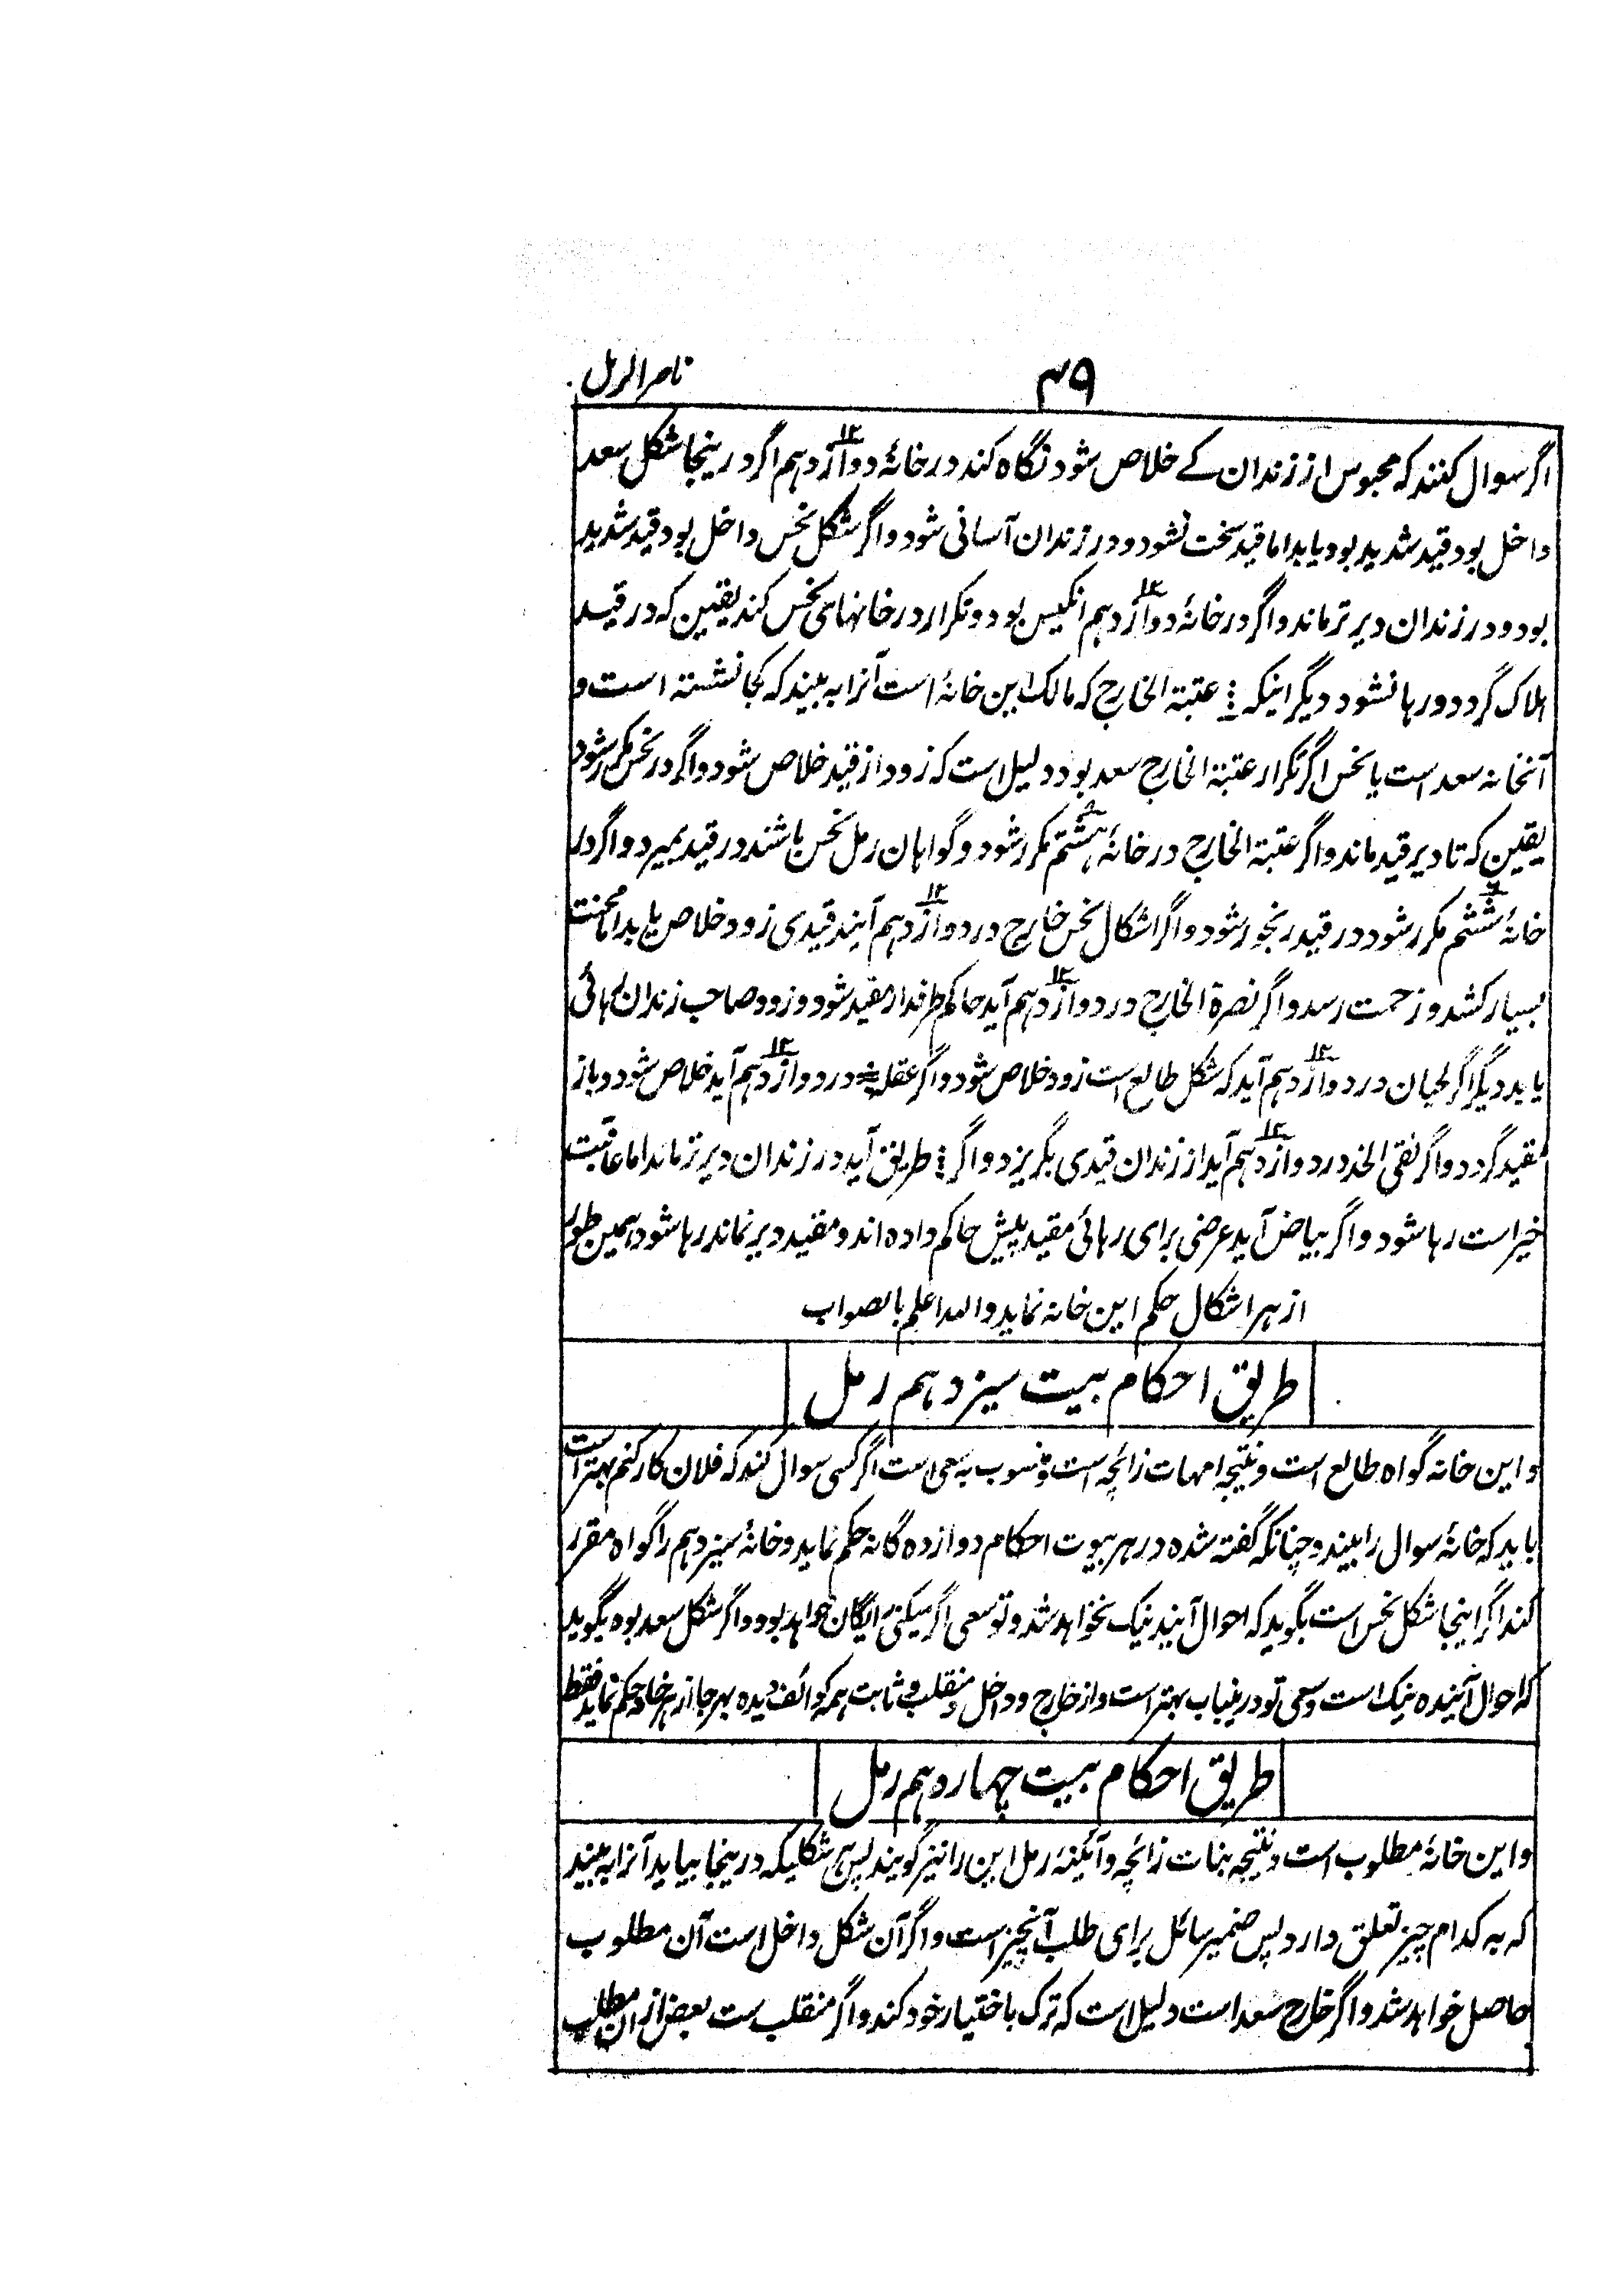 ناصر الرمل
۴۹
اگر سوال کنند که محبوس از زندان کے خلاص شود نگاه کند در خانهٔ دوازدهم ۱۲ اگر درینجا شکل سعد
داخل بود قید شدید بود یا بد اما قید سخت نشود و در زندان آسانی شود و اگر شکل نحس داخل بود قید شدید
بود و در زندان دیر تر ماند و اگر در خانهٔ دوازدهم ۱۲ انکیس بود و تکرار در خانهای نحس کند یقین که در قید
هلاک گردد و رها نشود دیگر اینکه عتبة الخارج که مالک این خانهٔ است آنرا به بیند که کجا نشسته است و
آنخانه سعد است یا نحس اگر تکرار عتبة الخارج سعد بود دلیل است که زود از قید خلاص شود و اگر در نحس مکرر شود
یقین که تا دیر قید ماند و اگر عتبة الخارج در خانهٔ هشتم ۸ مکرر شود و گواهان رمل نحس باشند در قید بمیرد و اگر در
خانهٔ ششم ۶ مکرر شود در قید رنجور شود و اگر اشکال نحس خارج در دوازدهم ۱۲ آیند قیدی زود خلاص یابد اما محنت
بسیار کشد و زحمت رسد و اگر نصرة الخارج در دوازدهم ۱۲ آید حاکم طرفدار مقید شود و زود صاحب زندان رہائی
یابد دیگر اگر لحیان در دوازدهم ۱۲ آید که شکل طالع است زود خلاص شود و اگر عقله در دوازدهم ۱۲ آید خلاص شود و باز
مقید گردد و اگر نقی الخد در دوازدهم ۱۲ آید از زندان قیدی بگریزد و اگر طریق آید در زندان دیر تر ماند اما عاقبت
خیر است رها شود و اگر بیاض آید عرضی برای رهائی مقید پیش حاکم داده اند و مقید دیر نماند رها شود همین طور
از هر اشکال حکم این خانه نماید والله اعلم بالصواب
طریق احکام بیت سیزدهم رمل
و این خانه گواه طالع است و نتیجه امهات زائچه است و منسوب به سعی است اگر کسی سوال کند که فلان کار کنم بهتر است
باید که خانهٔ سوال را بیند و چنانکه گفته شده در هر بیوت احکام دوازده گانه حکم نماید و خانهٔ سیزدهم را گواه مقرر
کند اگر اینجا شکل نحس است بگوید که احوال آیند نیک نخواهد شد و تو سعی اگر میکنی رایگان خواهد بود و اگر شکل سعد بوه بگوید
که احوال آینده نیک است و سعی تو درینباب بهتر است و از خارج و داخل و منقلب و ثابت همه کوائف دیده بهر جا از هر خانه حکم نماید فقط
طریق احکام بیت چهاردهم رمل
و این خانهٔ مطلوب است و نتیجه بنات زائچه و آئینهٔ رمل این را نیز گویند پس هر شکلیکه درینجا بیاید آنرا به بیند
که به کدام چیز تعلق دارد پس ضمیر سائل برای طلب آنچیز است و اگر آن شکل داخل است آن مطلوب
حاصل خواهد شد و اگر خارج سعد است دلیل است که ترک باختیار خود کند و اگر منقلب ست بعض از ان مطلب